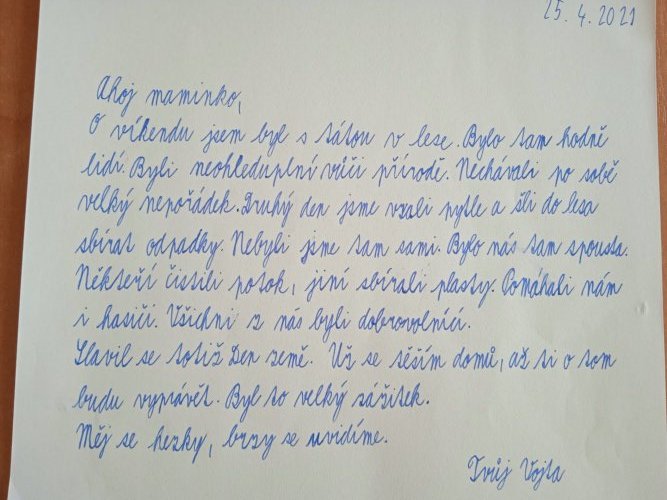 25. 4. 2021
Ahoj maminko,
O víkendu jsem byl s tátou v lese. Bylo tam hodně
lidí. Byli neohleduplní vůči přírodě. Nechávali po sobě
velký nepořádek. Druhý den jsme vzali pytle a šli do lesa
sbírat odpadky. Nebyli jsme tam sami. Bylo nás tam spousta.
Někteří čistili potok, jiní sbírali plasty. Pomáhali nám
i hasiči. Všichni z nás byli dobrovolníci.
Slavil se totiž Den země. Už se těším domů, až ti o tom
budu vyprávět. Byl to velký zážitek.
Měj se hezky, brzy se uvidíme.
Tvůj Vojta